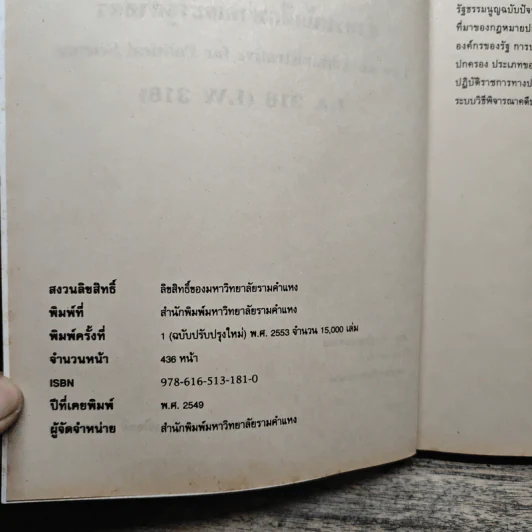 สงวนลิขสิทธิ์ ลิขสิทธิ์ของมหาวิทยาลัยรามคำแหง
พิมพ์ที่ สำนักพิมพ์มหาวิทยาลัยรามคำแหง
พิมพ์ครั้งที่ 1 (ฉบับปรับปรุงใหม่) พ.ศ. 2553 จำนวน 15,000 เล่ม
จำนวนหน้า 436 หน้า
ISBN 978-616-513-181-0
ปีที่เคยพิมพ์ พ.ศ. 2549
ผู้จัดจำหน่าย สำนักพิมพ์มหาวิทยาลัยรามคำแหง
รัฐธรรมนูญฉบับปัจ
ที่มาของกฎหมายป
องค์กรของรัฐ การบ
ปกครอง ประเภทขอ
ปฏิบัติราชการทางป
ระบบวิธีพิจารณาคดี